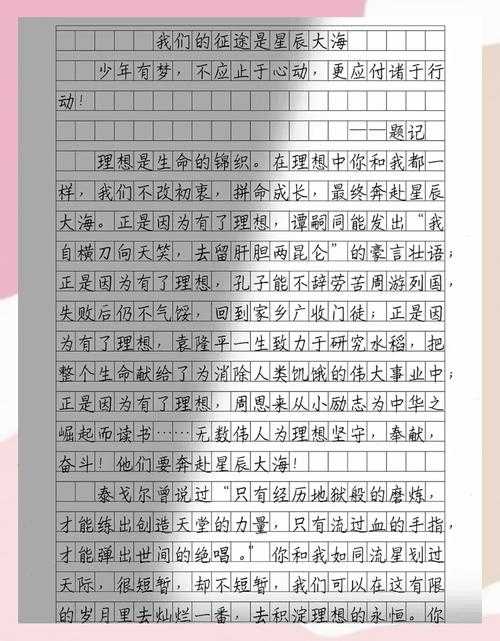 我们的征途是星辰大海
少年有梦，不应止于心动，更应付诸于行
动！
——题记
理想是生命的锦织。在理想中你和我都一
样，我们不改初衷，拼命成长，最终奔赴星辰
大海。正是因为有了理想，谭嗣同能发出“我
自横刀向天笑，去留肝胆两昆仑”的豪言壮语；
正是因为有了理想，孔子能不辞劳苦周游列国，
失败后仍不气馁，回到家乡广收门徒；正是因
为有了理想，袁隆平一生致力于研究水稻，把
整个生命献给了为消除人类饥饿的伟大事业中；
正是因为有了理想，周恩来从小励志为中华之
崛起而读书……无数伟人为理想坚守，奉献，
奋斗！他们要奔赴星辰大海！
泰戈尔曾说过“只有经历地狱般的磨炼，
才能练出创造天堂的力量，只有流过血的手指，
才能弹出世间的绝唱。”你和我如同流星划过
天际，很短暂，却不短暂，我们可以在这有限
的岁月里去灿烂一番，去积淀理想的永恒。你